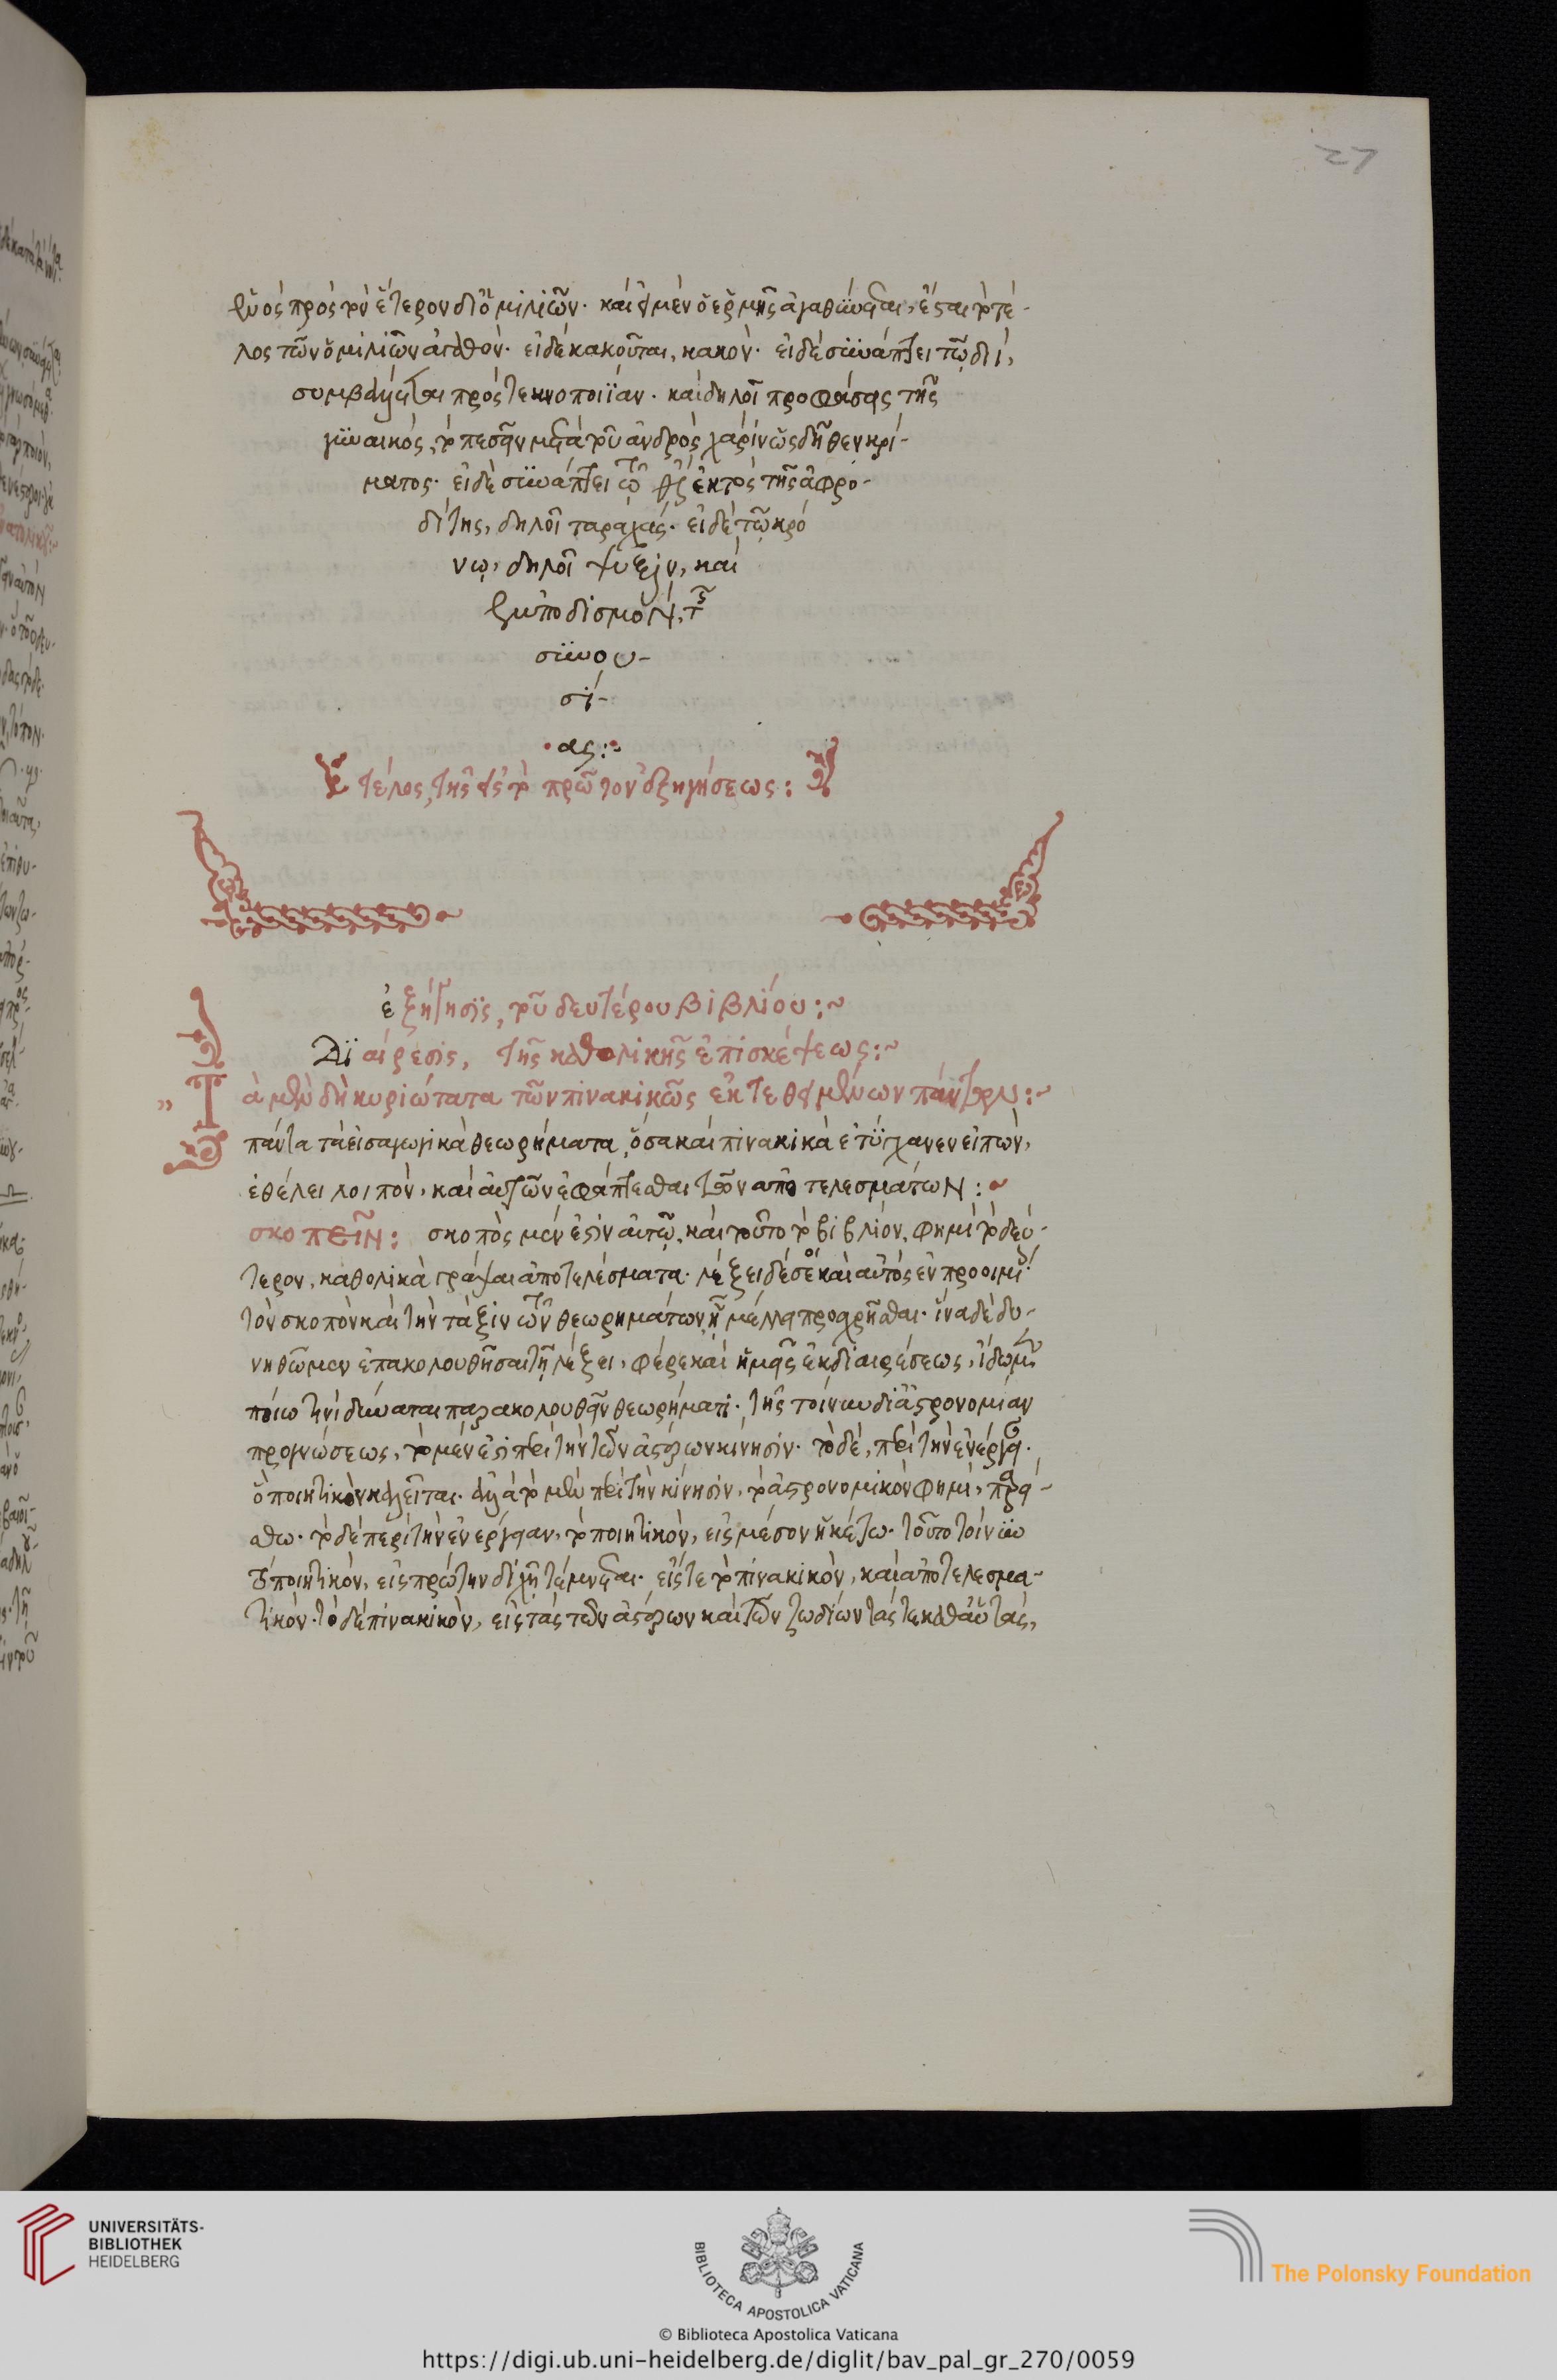 27
ἑνὸς πρὸς τὸν ἕτερον δι' ὁμιλιῶν. καὶ εἰ μὲν ὁ ἑρμῆς ἀγαθύνεται, ἔσται τὸ τέ-
λος τῶν ὁμιλιῶν ἀγαθόν. εἰ δὲ κακοῦται, κακόν. εἰ δὲ συνάπτει τῷ διὶ,
συμβάλλεται πρὸς τεκνοποιΐαν. καὶ δηλοῖ προφάσεις τῆς
γυναικὸς, τὸ πεσεῖν μετὰ τοῦ ἀνδρὸς χάριν ὡς δῆθεν κρί-
ματος. εἰ δὲ συνάπτει τῷ ἐκτὸς τῆς ἀφρο-
δίτης, δηλοῖ ταραχάς. εἰ δὲ τῷ κρό
νῳ, δηλοῖ ψύξιν, καὶ
ἐμποδισμὸν, τῆς
συνου-
σί-
ας:~
τέλος τῆς εἰς τὸ πρῶτον ἐξηγήσεως:
ἐξήγησις, τοῦ δευτέρου βιβλίου:~
Διαίρεσις, τῆς καθολικῆς ἐπισκέψεως:~
Τὰ μὲν δὴ κυριώτατα τῶν πινακικῶς ἐκτεθειμένων πάντων:~
πάντα τὰ εἰσαγωγικὰ θεωρήματα, ὅσα καὶ πινακικὰ ἐτύγχανεν εἰπὼν,
ἐθέλει λοιπὸν, καὶ αὐτῶν ἐφάπτεσθαι τῶν ἀποτελεσμάτων:~
σκοπεῖν: σκοπὸς μέν ἐστιν αὐτῷ, κατὰ τοῦτο τὸ βιβλίον, φημὶ τὸ δεύ-
τερον, καθολικὰ γράψαι ἀποτελέσματα. λέξει δέ σοι καὶ αὐτὸς ἐν προοιμίοις
τὸν σκοπὸν καὶ τὴν τάξιν τῶν θεωρημάτων ᾗ μέλλει προχρῆσθαι. ἵνα δὲ δυ-
νηθῶμεν ἐπακολουθῆσαι τῇ λέξει, φέρε καὶ ἡμεῖς ἐκ διαιρέσεως, ἴδωμεν
ποίῳ τινὶ δύναται παρακολουθεῖν θεωρήματι. τῆς τοίνυν δι' ἀστρονομίαν
προγνώσεως, τὸ μέν ἐστι περὶ τὴν τῶν ἀστέρων κίνησιν. τὸ δὲ, περὶ τὴν ἐνέργειαν.
ὃ ποιητικὸν καλεῖται. ἀλλὰ τὸ μὲν περὶ τὴν κίνησιν, τὸ ἀστρονομικὸν φημὶ, παρεί-
σθω. τὸ δὲ περὶ τὴν ἐνέργειαν, τὸ ποιητικὸν, εἰς μέσον ἡκέτω. τοῦτο τοίνυν
τὸ ποιητικὸν, εἰς πρώτην διχῇ τέμνεται. εἴς τε τὸ πινακικὸν, καὶ ἀποτελεσμα-
τικόν. τὸ δὲ πινακικὸν, εἰς τὰς τῶν ἀστέρων καὶ τῶν ζωδίων τάς τε καθ' αὑτὰς,
UNIVERSITÄTS-
BIBLIOTHEK
HEIDELBERG
BIBLIOTECA APOSTOLICA VATICANA
The Polonsky Foundation
© Biblioteca Apostolica Vaticana
https://digi.ub.uni-heidelberg.de/diglit/bav_pal_gr_270/0059